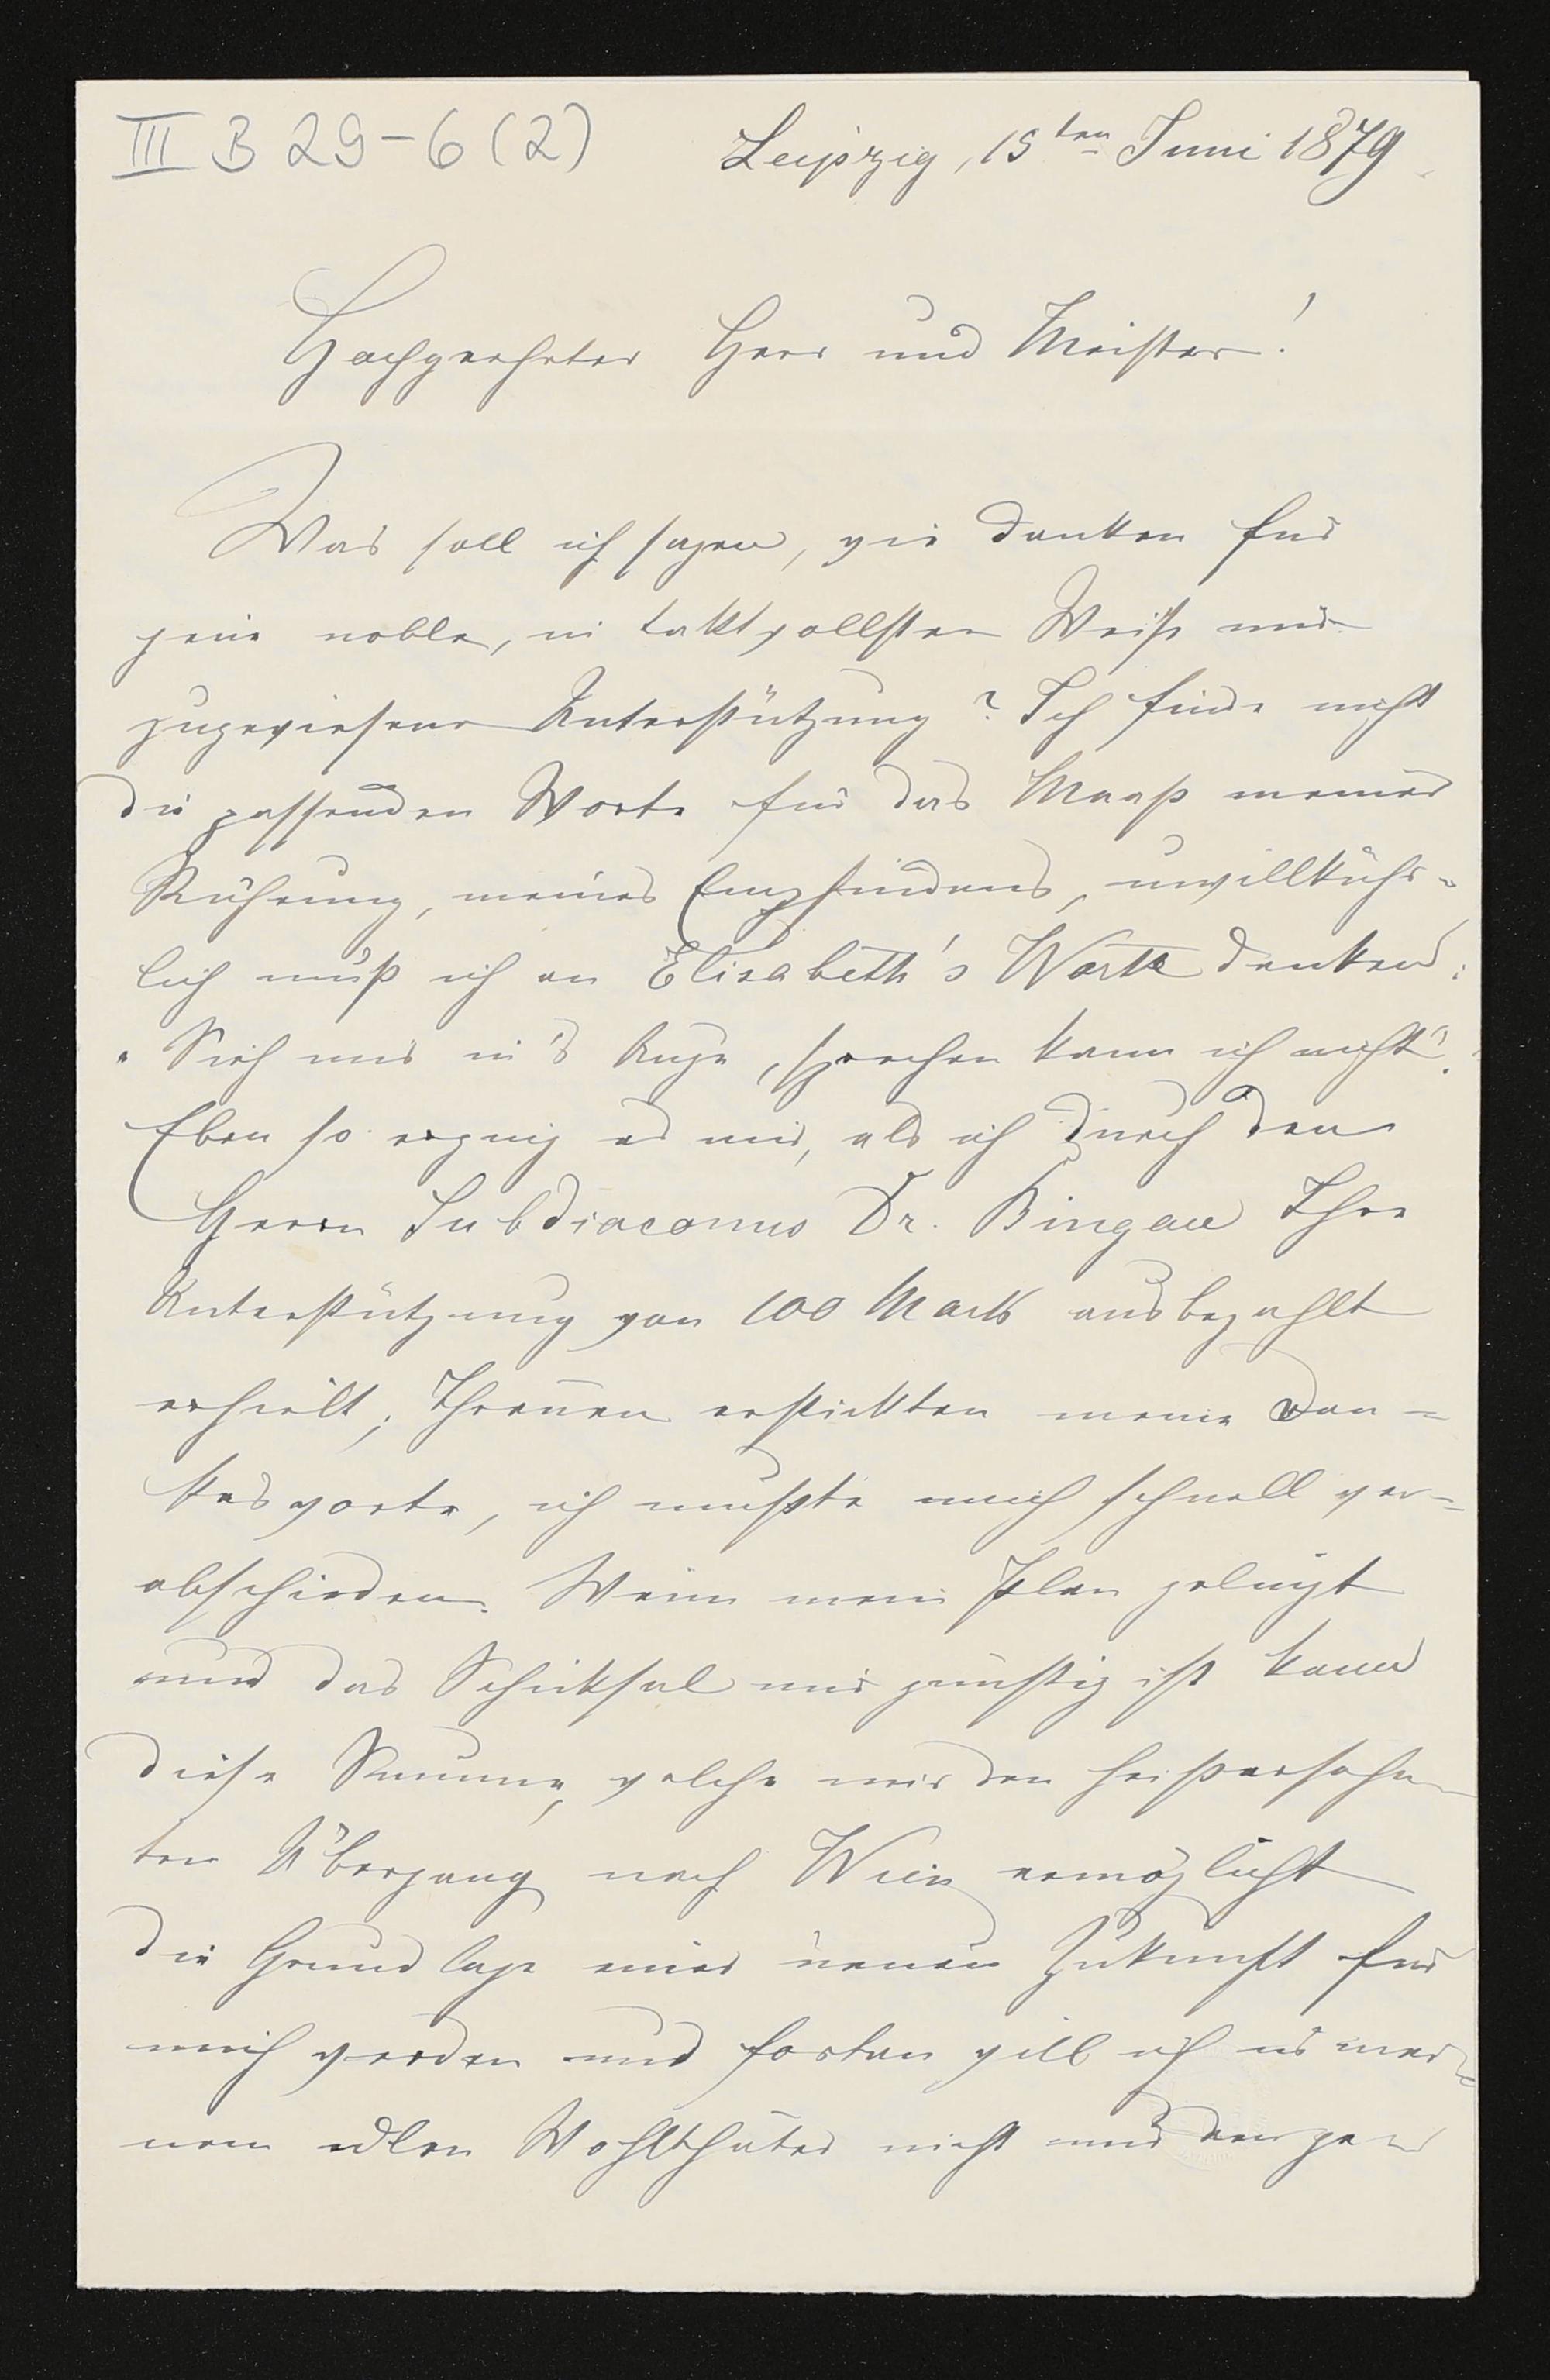 III B 29-6 (2)
Leipzig, 15ten Juni 1879
Hochgeehrter Herr und Meister!
Was soll ich sagen, wie danken für
jene noble, in taktvollster Weise mir
zugewiesene Unterstützung? Ich finde nicht
die passenden Worte für das Maaß meiner
Rührung, meines Empfindens, unwillkühr=
lich muß ich an Elisabeth's Worte denken:
"Sieh mir in's Auge, sprechen kann ich nicht".
Eben so erging es mir, als ich durch den
Herrn Subdiaconus Dr. Bingau Ihre
Unterstützung von 100 Mark ausbezahlt
erhielt; Thränen erstickten meine Dan=
kesworte, ich mußte mich schnell ver=
abschieden. Wenn mein Plan gelingt
und das Schicksal mir günstig ist kann
diese Summe, welche mir den heißersehn
ten Übergang nach Wien ermöglicht
die Grundlage einer neuen Zukunft für
mich werden und fortan will ich es mei=
nem edlen Wohlthäter nicht nur